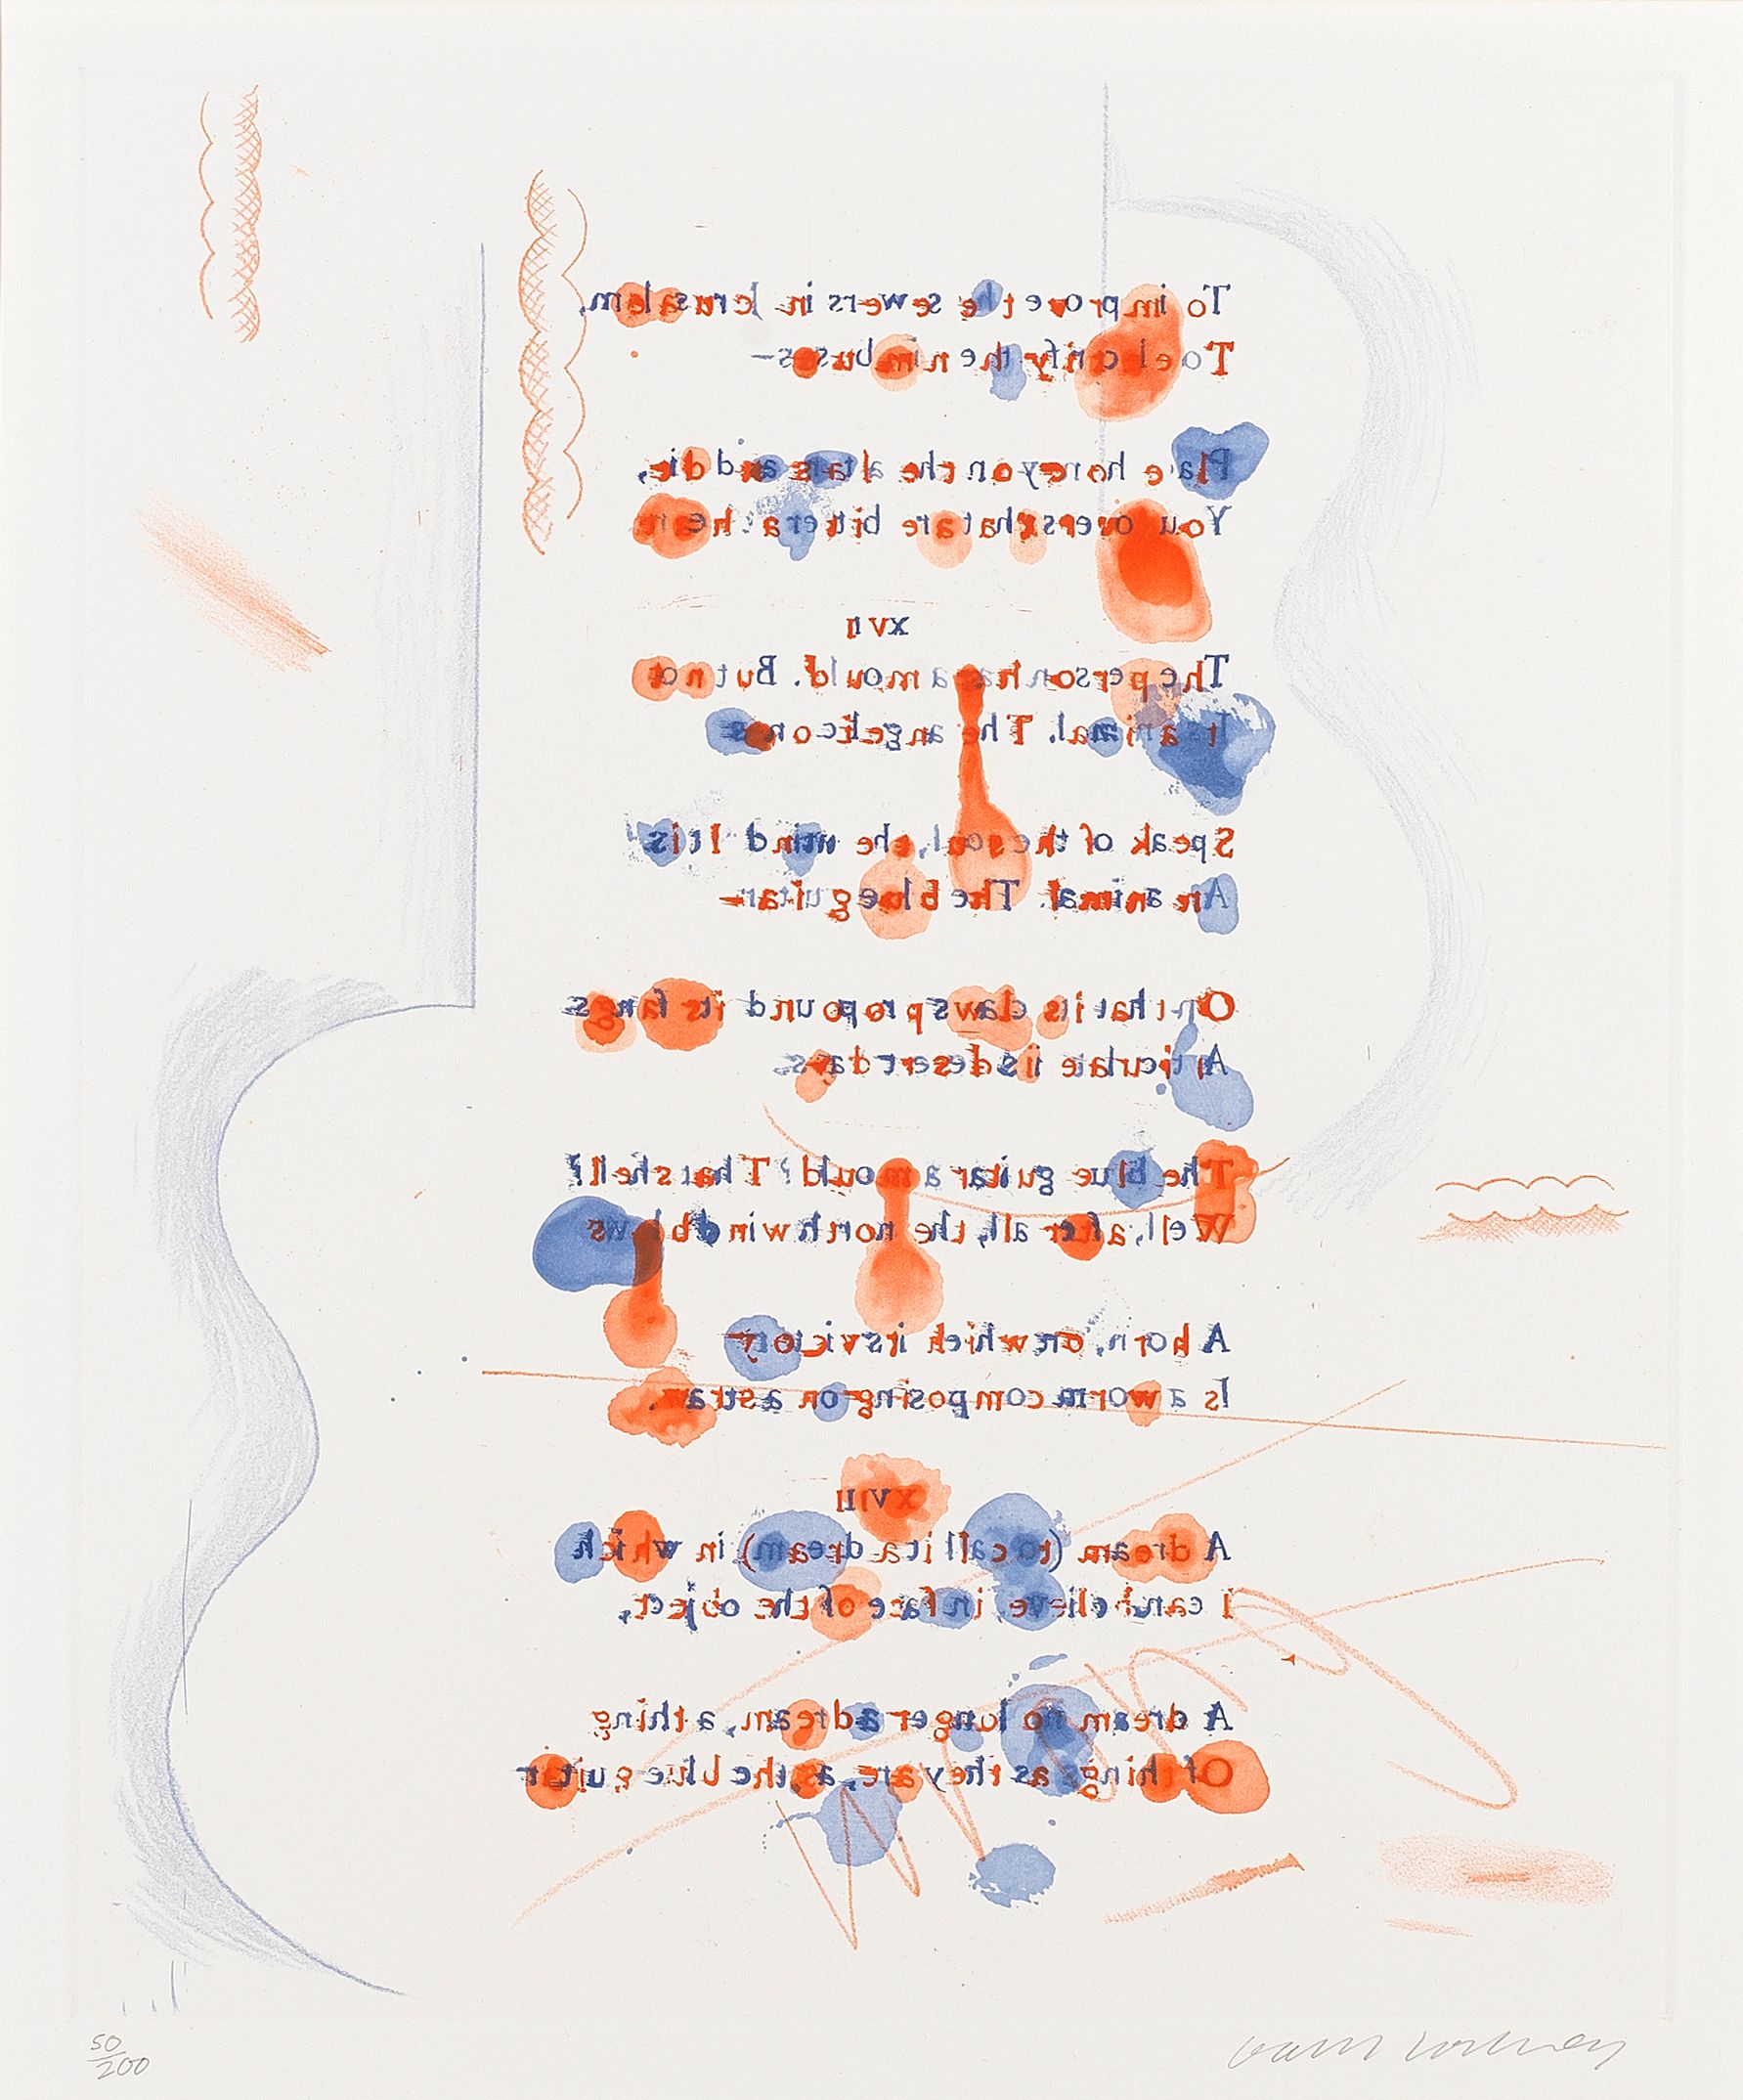 To improve the sewers in Jerusalem,
To electrify the nimbuses—
Place honey on the altars and die,
You lovers that are bitter at heart
XVII
The person has a mould. But not
Its animal. The angelic ones
Speak of the soul, the mind It is
An animal. The blue guitar—
On that its claws propound its fangs
Articulate its desert days.
The blue guitar a mould? That shell?
Well, after all, the north wind blows
A horn, on which its victory
Is a worm composing on a straw.
XVIII
A dream (to call it a dream) in which
I can believe, in face of the object,
A dream no longer a dream, a thing
Of things as they are, as the blue guitar
50/200
David Hockney